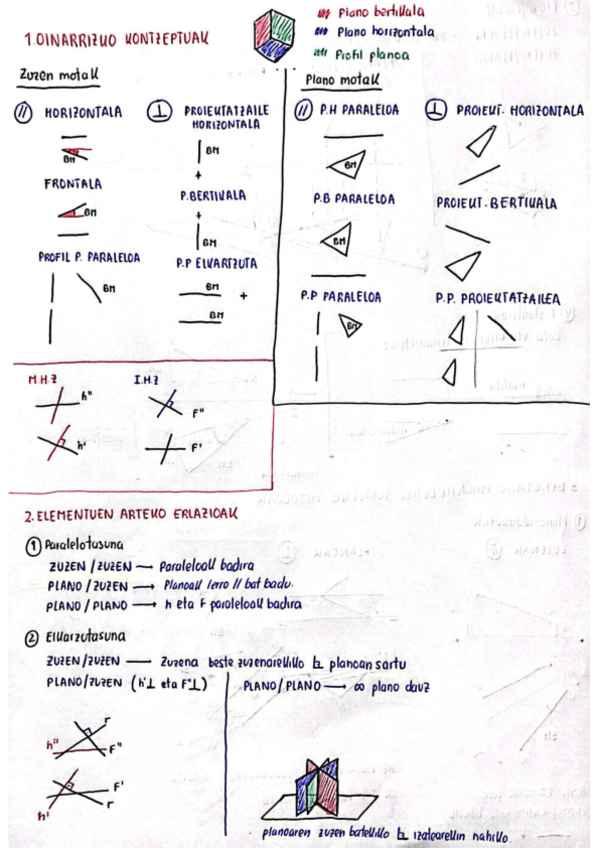 1.OINARRIZKO KONTZEPTUAK
Plano bertikala
Plano horizontala
Profil planoa
Zuzen motak
// HORIZONTALA
BM
FRONTALA
BM
PROFIL P. PARALELOA
BM
⊥ PROIEKTATZAILE
HORIZONTALA
BM
+
P.BERTIKALA
+
BM
P.P ELKARTZUTA
BM
+
BM
Plano motak
// P.H PARALELOA
BM
P.B PARALELOA
BM
P.P PARALELOA
BM
⊥ PROIEKT. HORIZONTALA
PROIEKT.BERTIKALA
P.P. PROIEKTATZAILEA
M.H.Z
h"
h'
I.H.Z
F"
F'
2.ELEMENTUEN ARTEKO ERLAZIOAK
1 Paralelotasuna
ZUZEN/ZUZEN → Paraleloak badira
PLANO/ZUZEN → Planoak lerro // bat badu.
PLANO/PLANO → h eta F paraleloak badira
2 Elkarzutasuna
ZUZEN/ZUZEN — Zuzena beste zuzenarekiko ⊥ planoan sartu
PLANO/ZUZEN (h'⊥ eta F"⊥)
r
h"
F"
F'
r
h'
PLANO/PLANO → ∞ plano dauz
planoaren zuzen batekiko ⊥ izatearekin nahiko.